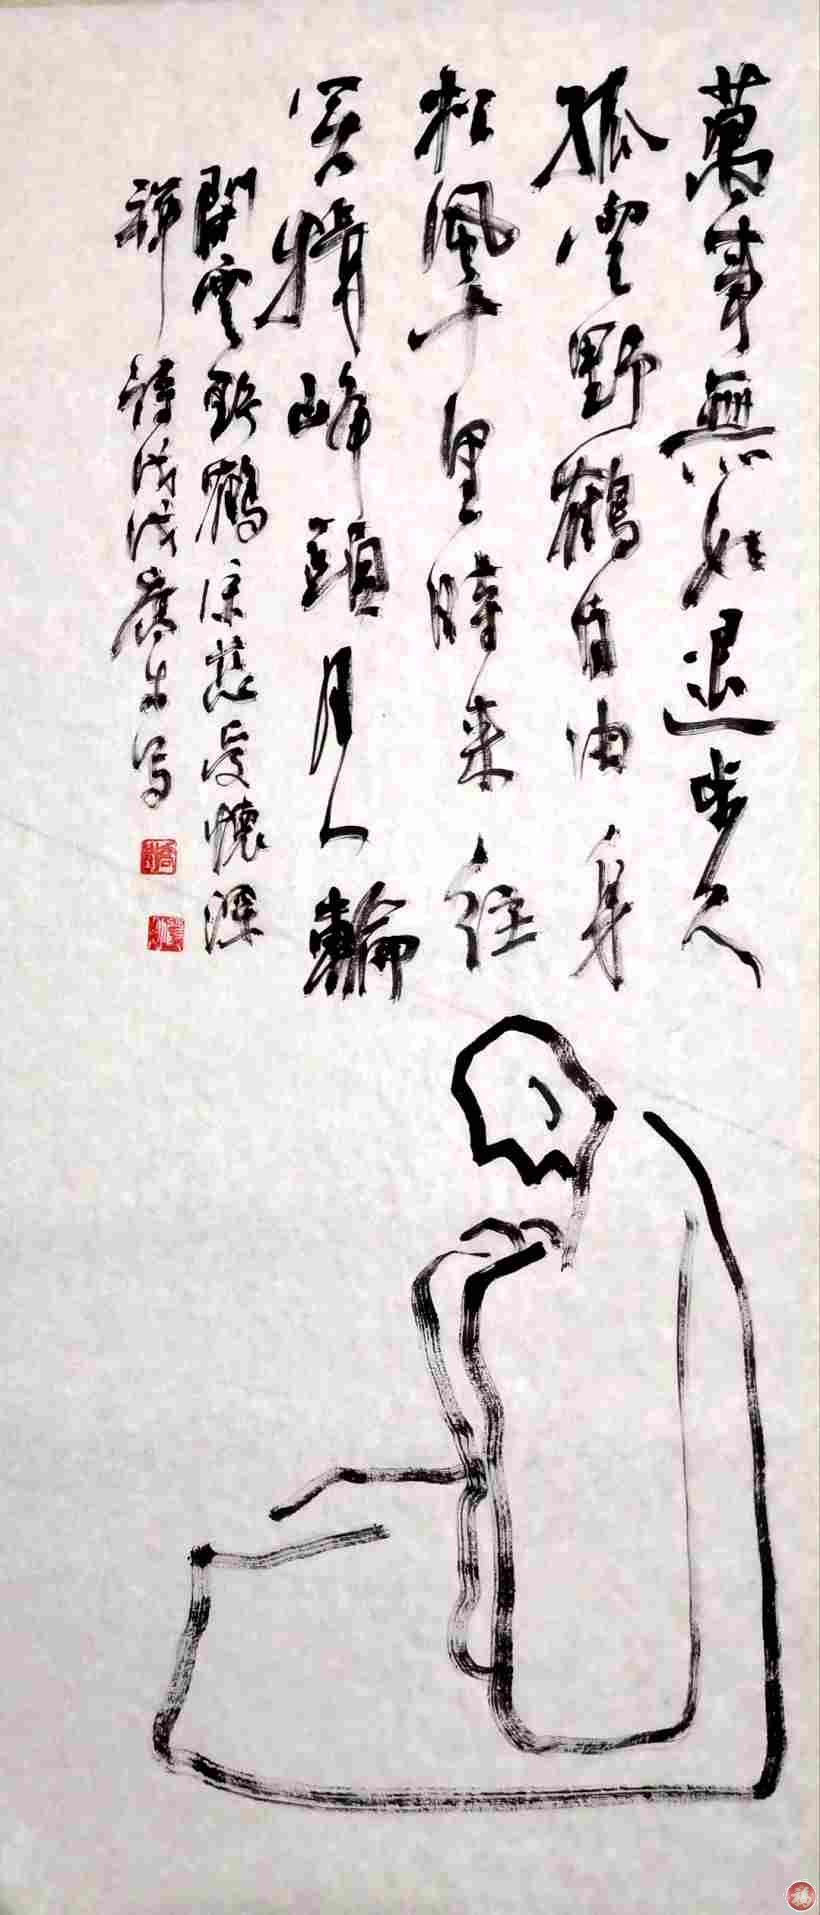 萬事無如退步人
孤雲野鶴自由身
松風十里時来往
笑揖峰頭月一輪
閑雲野鶴宋慈受懷深
禅诗戊戌喬木写
福